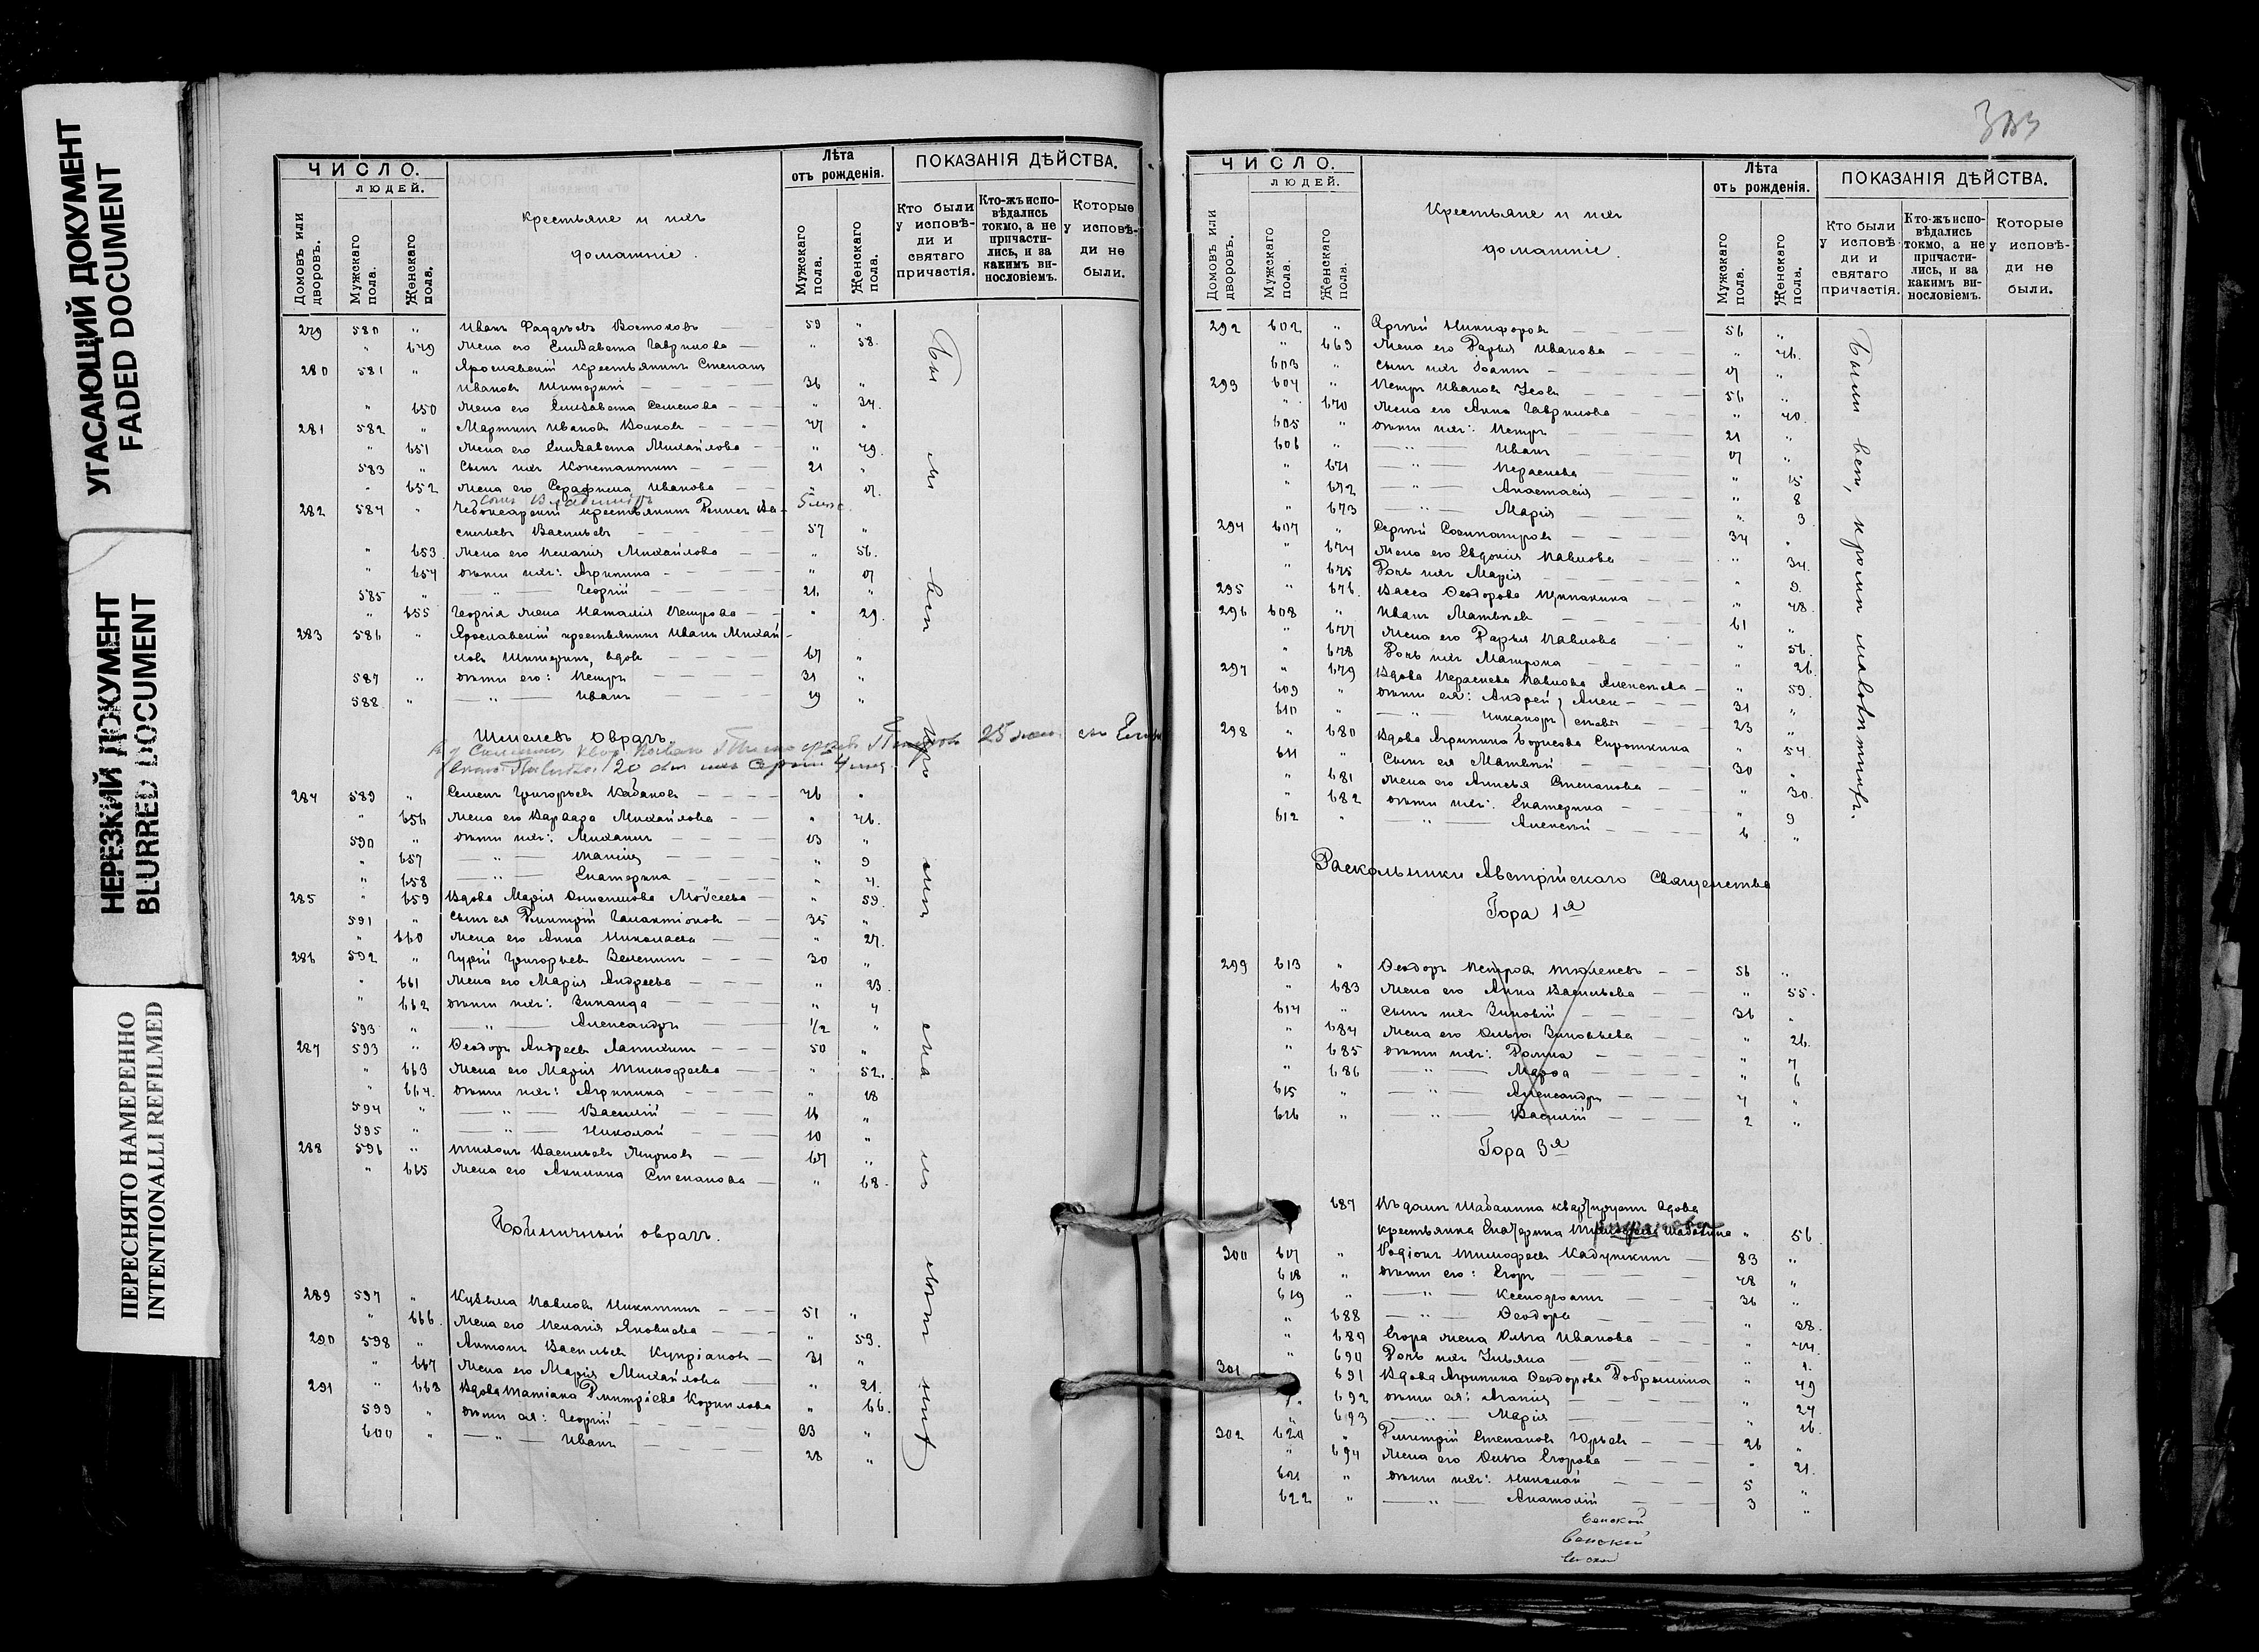 УГАСАЮЩИЙ ДОКУМЕНТ
FADED DOCUMENT
НЕРЕЗКИЙ ДОКУМЕНТ
BLURRED DOCUMENT
ПЕРЕСНЯТО НАМЕРЕННО
INTENTIONALLI REFILMED
ЧИСЛО.
ЛЮДЕЙ.
Домовъ или дворовъ.
Мужскаго пола.
Женскаго пола.
Крестьяне и ихъ
домашніе.
Лѣта
отъ рожденія.
Мужскаго пола.
Женскаго пола.
ПОКАЗАНІЯ ДѢЙСТВА.
Кто были у исповѣди и святаго причастія.
Кто-жъ исповѣдались токмо, а не причастились, и за какимъ винословіемъ.
Которые у исповѣди не были.
279 580 " Иванъ Фаддѣевъ Востоковъ 59 "
" 649 Жена его Елизавета Гаврилова " 58.
280 581 " Ярославскій крестьянинъ Степанъ
Ивановъ 36 "
" 650 Жена его Елизавета Семенова " 34.
281 582 " Мартинъ Ивановъ Волковъ 47 "
" 651 Жена его Елизавета Михайлова " 49.
583 " Сынъ ихъ Константинъ 21 "
" 652 Жена его Серафима Иванова "
сынъ Владиміръ 5 мѣс
282 584 " Чебоксарскій крестьянинъ Ва-
сильевъ Васильевъ 57 "
" 653. Жена его Пелагія Михайлова " 56.
" 654 дѣти ихъ: Агрипина "
585 " — " — Георгій 21. "
" 655 Георгія жена Наталія Петрова " 29.
283 586 " Ярославскій крестьянинъ Иванъ Михай-
ловъ , вдовъ 67 "
587 " дѣти его: Петръ 31 "
588 " — " — Иванъ 19 "
Шмелевъ Оврагъ.
284 589 " Семенъ Григорьевъ Кабановъ 46 "
" 656 Жена его Варвара Михайлова " 46.
590 " дѣти ихъ: Михаилъ 13 "
" 657 — " — Таисія " 9
" 658 — " — Екатерина " 4.
285 " 659 Вдова Марія Моѵсеева " 59.
591 " Сынъ ея Димитрій Галактіоновъ 35 "
" 660 Жена его Анна Николаева " 27.
286 592 " Гурій Григорьевъ 30 "
" 661 Жена его Марія Андреева " 23.
" 662 дѣти ихъ: Зинаида " 4
593 " — " — Александръ 1/2 "
287 593 " Ѳеодоръ Андреевъ Лапшинъ 50 "
" 663 Жена его Марія Тимофеева " 52.
" 664. дѣти ихъ: Агрипина " 18
594 " — " — Василій 16 "
595 " — " — Николай 10 "
288 596 " Тихонъ Васильевъ 67 "
" 665 Жена его Акилина Степанова " 68.
оврагъ.
289 597 " Кузьма Павловъ Никитинъ 51 "
" 666. Жена его Пелагія Яковлева " 53.
290 598 " Антонъ Васильевъ Купріяновъ 31 "
" 667 Жена его Марія Михайлова " 21.
291 " 668 Вдова Татіана Димитріева Корнилова " 66.
599 " дѣти ея: Георгій 33 "
600 " — " — Иванъ 28 "
ЧИСЛО.
ЛЮДЕЙ.
Домовъ или дворовъ.
Мужскаго пола.
Женскаго пола.
Крестьяне и ихъ
домашніе.
Лѣта
отъ рожденія.
Мужскаго пола.
Женскаго пола.
ПОКАЗАНІЯ ДѢЙСТВА.
Кто были у исповѣди и святаго причастія.
Кто-жъ исповѣдались токмо, а не причастились, и за какимъ винословіемъ.
Которые у исповѣди не были.
Были всѣ, кромѣ малолѣтнихъ.
292 602 " Сергѣй Никифоровъ 56 "
" 669 Жена его Дарья Иванова " 46.
603 " Сынъ ихъ Іоаннъ 17 "
293 604 " Петръ Ивановъ Усовъ 56 "
" 670 Жена его Анна Гаврилова " 40.
605 " дѣти ихъ: Петръ 21 "
606 " — " — Иванъ 17 "
" 671 — " — Параскева " 15
" 672 — " — Анастасія " 8
" 673 — " — Марія " 3
294 607 " Сергѣй Сосипатровъ 34 "
" 674 Жена его Евдокія Павлова " 34.
" 675 Дочь ихъ Марія " 9.
295 " 676. Васса Ѳеодорова " 48.
296 608 " Иванъ Матвѣевъ 61 "
" 677 Жена его Дарья Павлова " 56.
" 678 Дочь ихъ Матрона " 26.
297 " 679 Вдова Параскева Павлова Алексѣева " 59.
609 " дѣти ея: Андрей } Алек- 31 "
610 " — " — Никаноръ } сѣевы 23 "
298 " 680 Вдова Агрипина Борисова Сироткина " 54.
611 " Сынъ ея Матвѣй 30 "
" 681 Жена его Алисья Степанова " 30.
" 682 дѣти ихъ: Екатерина " 9
612 " — " — Алексѣй 6 "
Раскольники Австрійскаго Священства
Гора 1я
299 613 " Ѳеодоръ Петровъ Тюленевъ 56 "
" 683 Жена его Анна Васильева " 55.
614 " Сынъ ихъ Зиновій 36 "
" 684 Жена его Ольга Зиновьева " 26.
" 685 дѣти ихъ: " 7
" 686 — " — Марѳа " 6
615 " — " — Александръ 4 "
616 " — " — Василій 2 "
Гора 3я
687 Въ домѣ Шабалина квартируетъ вдова
крестьянка Екатерина " 56.
300 617 " Родіонъ Тимофеевъ Кадушкинъ 83 "
618 " дѣти его: Егоръ 48 "
619 " — " — Ксенофонтъ 36 "
" 688 — " — Ѳеодора " 38.
" 689 Егора жена Ольга Иванова " 44.
" 690 Дочь ихъ Ульяна " 1.
301 " 691 Вдова Агрипина Ѳеодорова Добрынина " 49
" 692 дѣти ея: Агапія " 27
" 693 — " — Марія " 16.
302 620 " Димитрій Степановъ Юрьевъ 26 "
" 694 Жена его Ольга Егорова " 21.
621 " дѣти ихъ: Николай 5 "
622 " — " — Анатолій 3 "